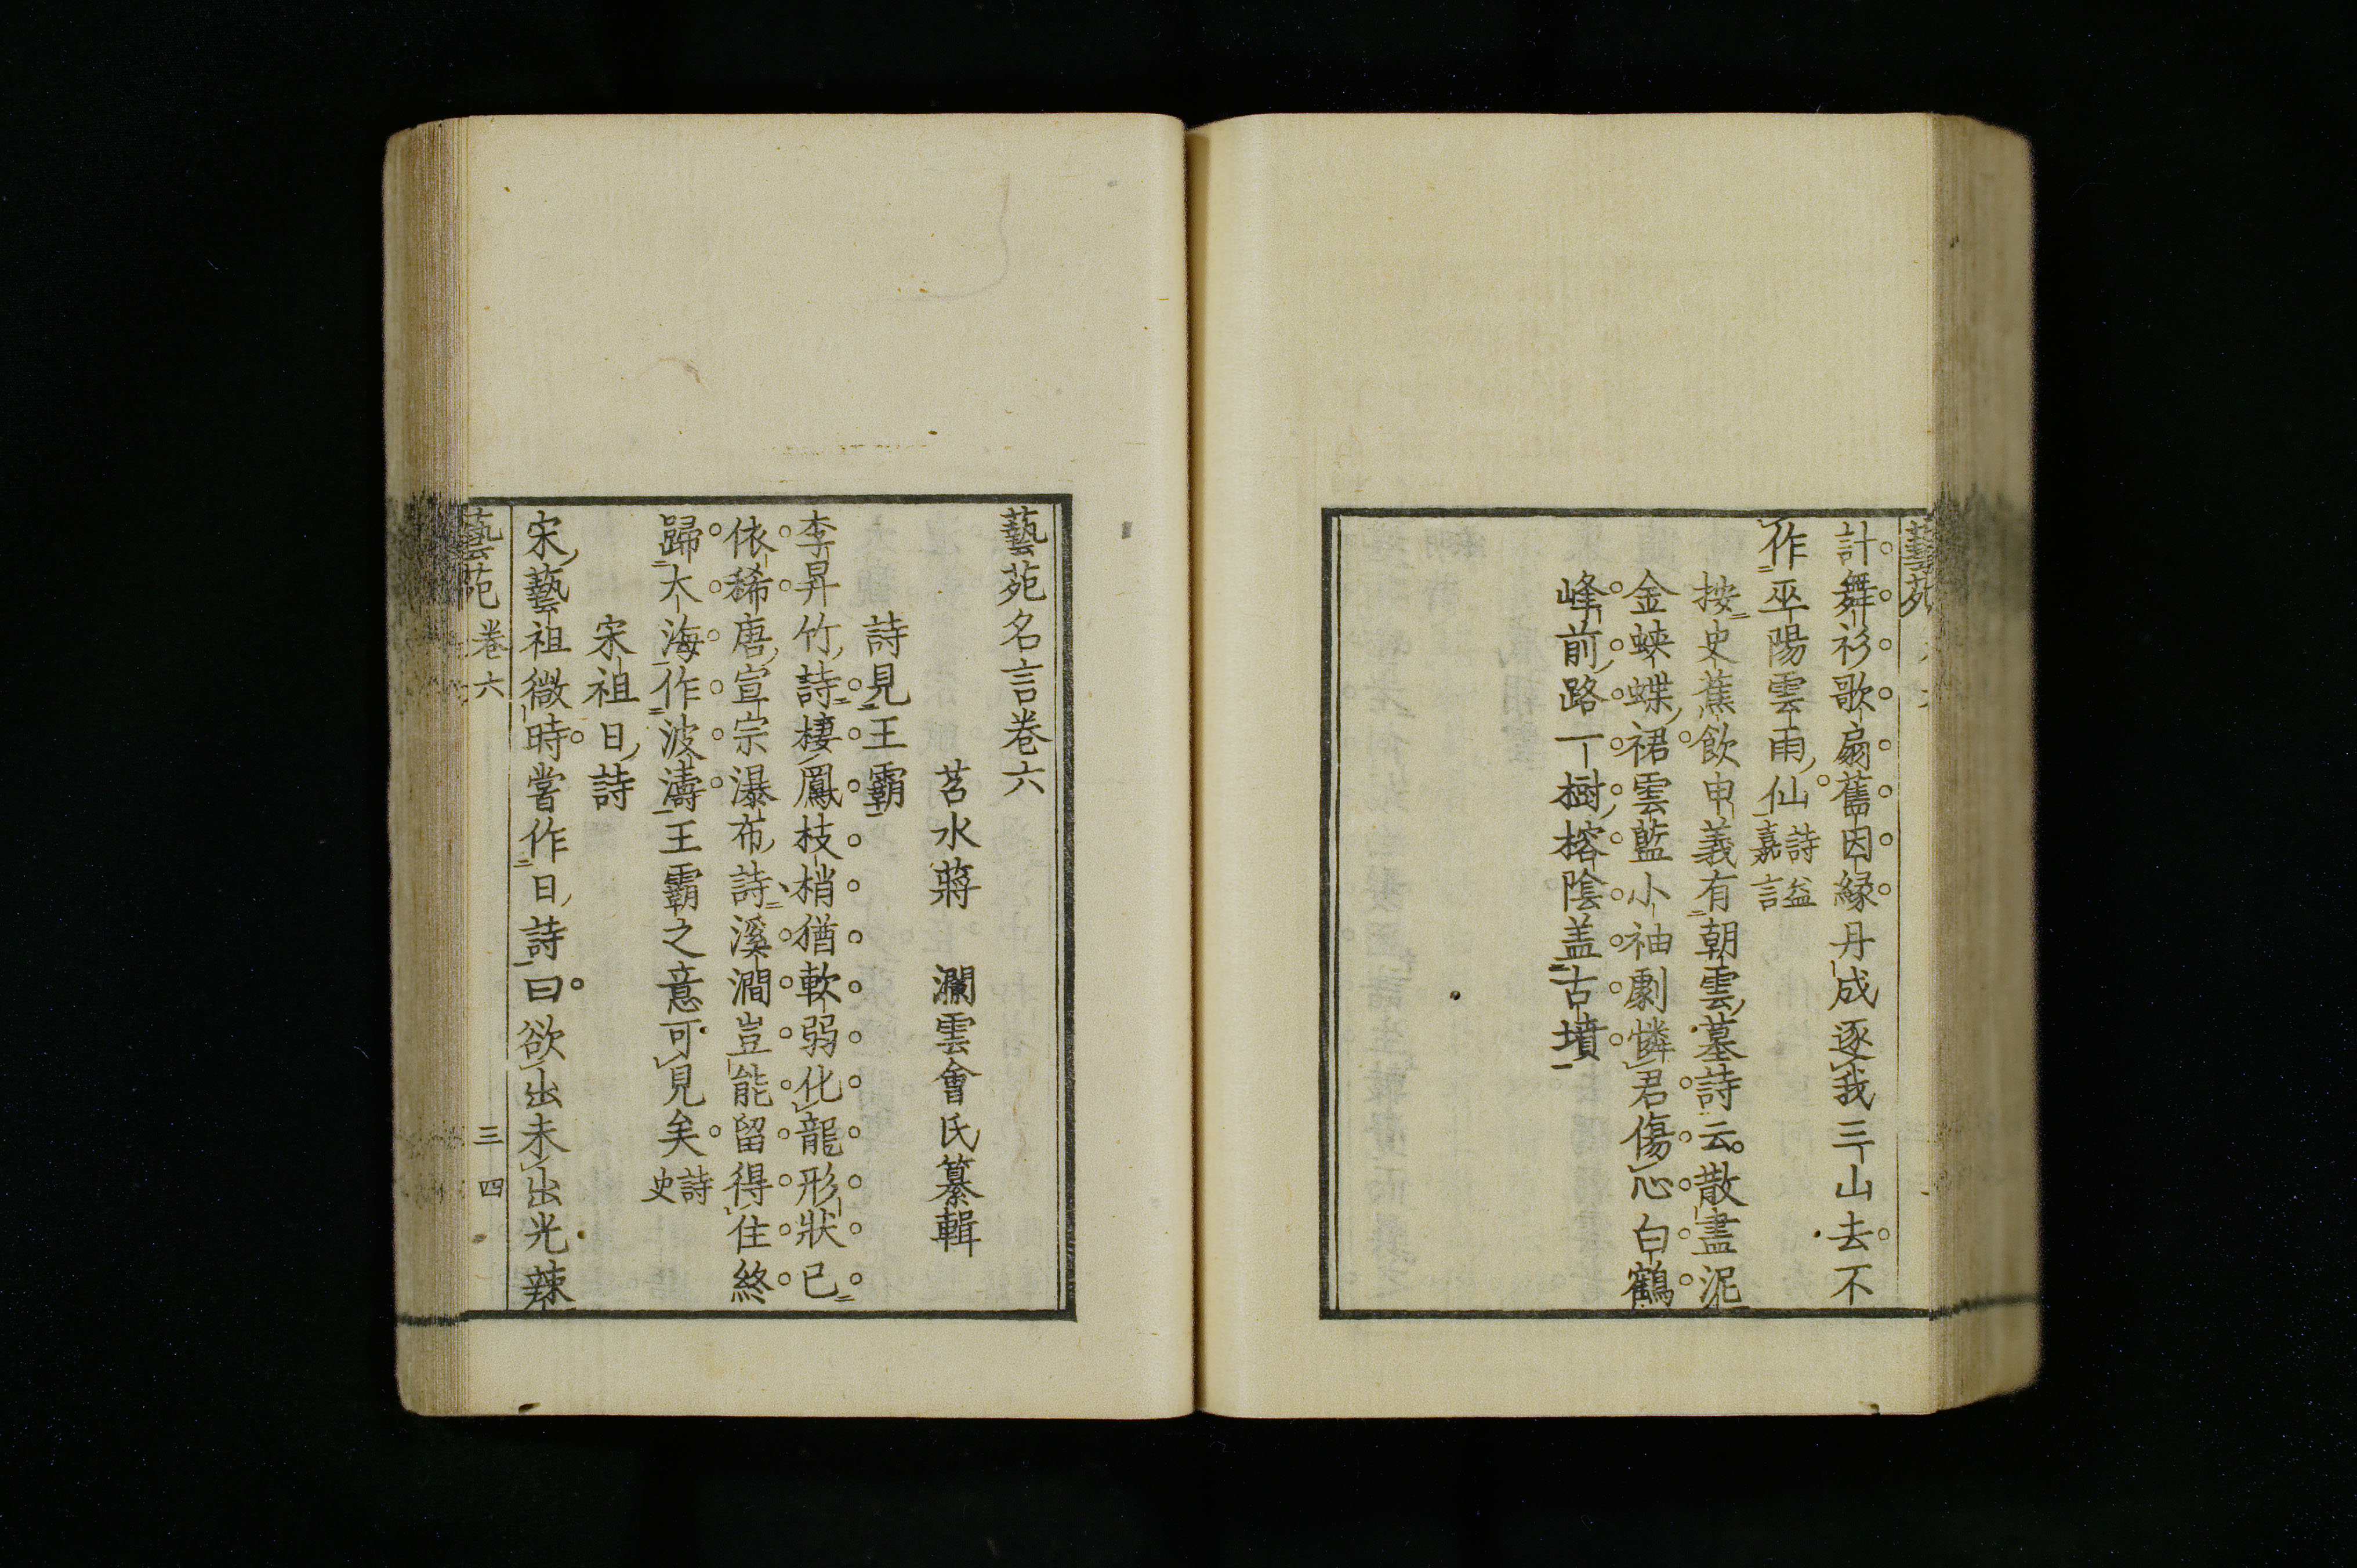 藝苑
計舞衫歌扇舊因緣丹成逐我三山去不
作巫陽雲雨仙詩益嘉言
按史蕉飲申義有朝雲墓詩云散盡泥
金蛺蝶裙雲藍小袖劇憐君傷心白鶴
峰前路一樹榕陰盖古墳
藝苑名言卷六
苕水蔣　瀾雲會氏纂輯
詩見王霸
李昇竹詩棲鳳枝梢猶軟弱化龍形狀已
依稀唐宣宗瀑布詩溪澗豈能留得住終
歸大海作波濤王霸之意可見矣詩史
宋祖日詩
宋藝祖微時嘗作日詩曰欲出未出光辣
藝苑卷六　三四